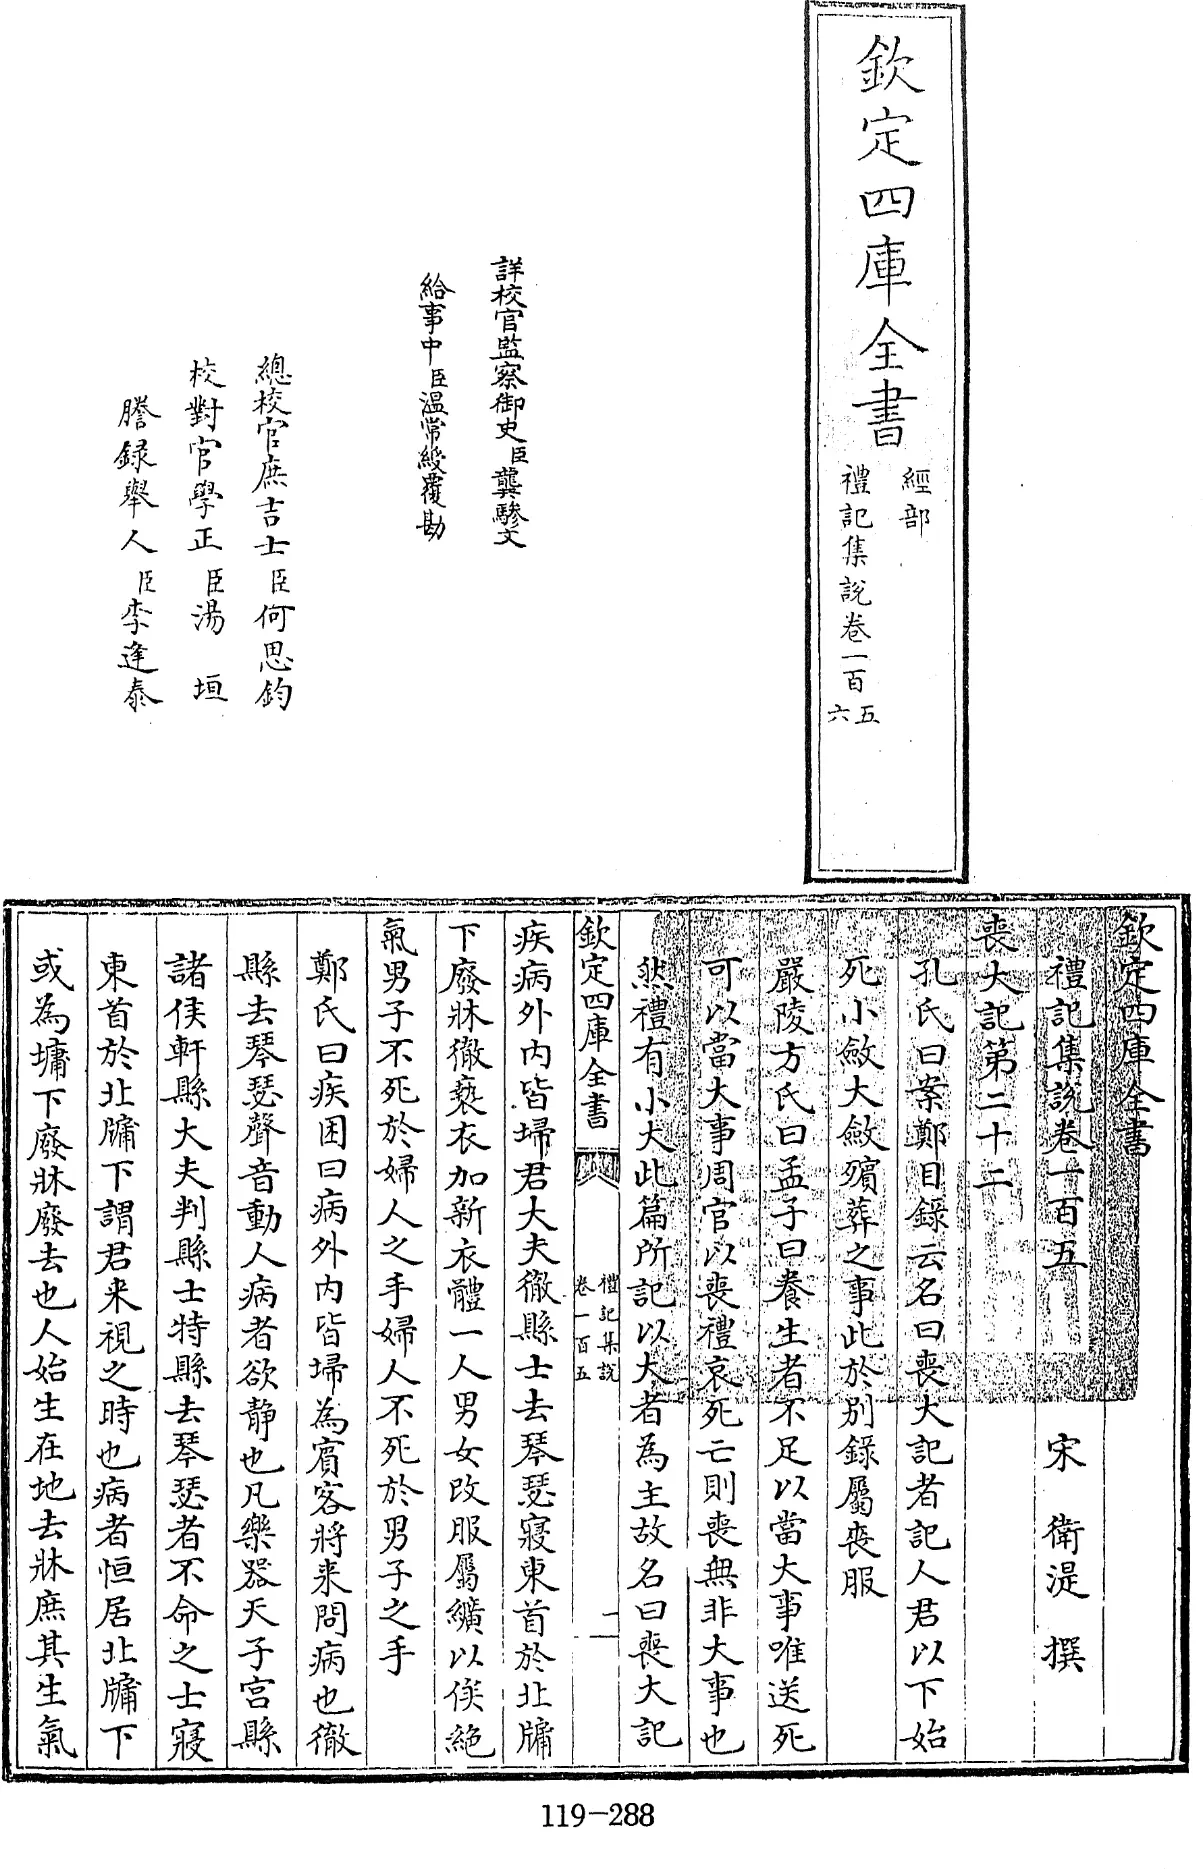 欽定四庫全書
經部
禮記集說卷一百五
六
詳校官監察御史臣龔驂文
給事中臣溫常綬覆勘
總校官庶吉士臣何思鈞
校對官學正臣湯垣
謄錄舉人臣李逢泰
欽定四庫全書
禮記集說卷一百五
宋 衛湜 撰
喪大記第二十二
孔氏曰案鄭目錄云名曰喪大記者記人君以下始
死小斂大斂殯葬之事此於别錄屬喪服
嚴陵方氏曰孟子曰養生者不足以當大事唯送死
可以當大事周官以喪禮哀死亡則喪無非大事也
然禮有小大此篇所記以大者為主故名曰喪大記
欽定四庫全書
禮記集說
卷一百五
一
疾病外内皆埽君大夫徹縣士去琴瑟寢東首於北牖
下廢牀徹䙝衣加新衣體一人男女改服屬纊以俟絶
氣男子不死於婦人之手婦人不死於男子之手
鄭氏曰疾困曰病外内皆埽為賓客將來問病也徹
縣去琴瑟聲音動人病者欲静也凡樂器天子宫縣
諸侯軒縣大夫判縣士特縣去琴瑟者不命之士寢
東首於北牖下謂君来視之時也病者恒居北牖下
或為墉下廢牀廢去也人始生在地去牀庶其生氣
119-288